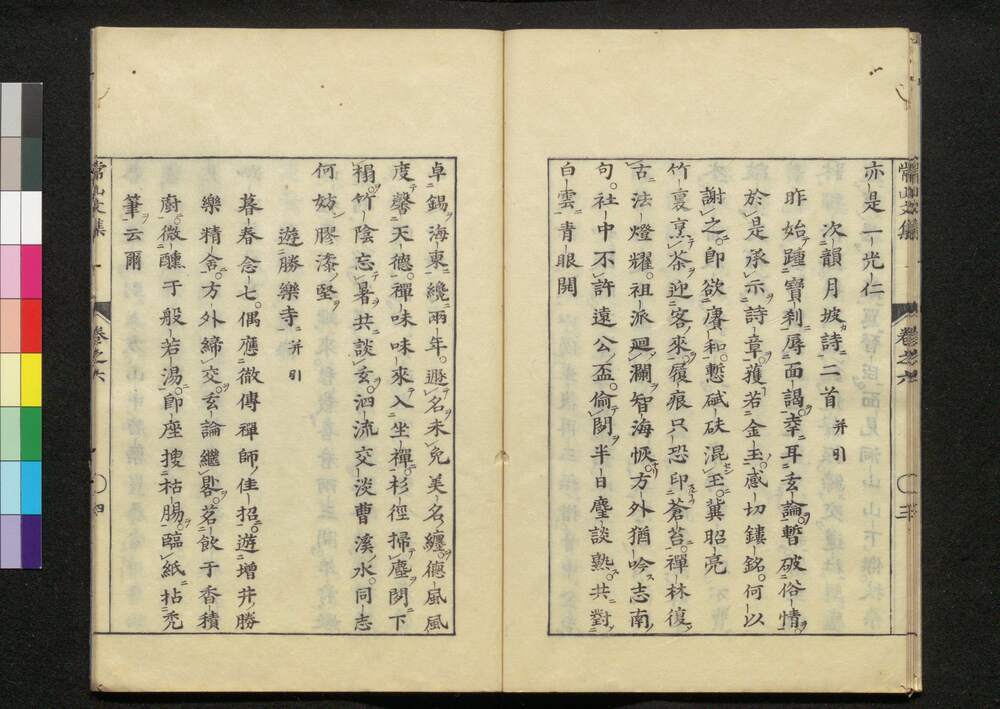 亦是一光仁
次韻月坡詩二首 并引
昨始踵寶刹辱面謁幸耳玄論暫破俗情
於是承示詩章獲若金玉感切鏤銘何以
謝之即欲賡和慙碔砆混玉冀昭亮
竹裏烹茶迎客來履痕只恐印蒼苔禪林復
古法燈耀祖派廻瀾智海恢方外猶吟志南
句社中不許遠公盃偷閑半日麈談熟共對
白雲青眼開
卓錫海東纔兩年遯名未免美名纏德風風
度馨天德禪味味來入坐禪杉徑掃塵閑下
榻竹陰忘暑共談玄泗流交淡曹溪水同志
何妨膠漆堅
遊勝樂寺 并引
暮春念七偶應徹傳禪師佳招遊增井勝
樂精舍方外締交玄論繼晷茗飲于香積
廚微醺于般若湯即座搜枯腸臨紙拈禿
筆云爾
常山文集
卷之六
三
常山文集
卷之六
四